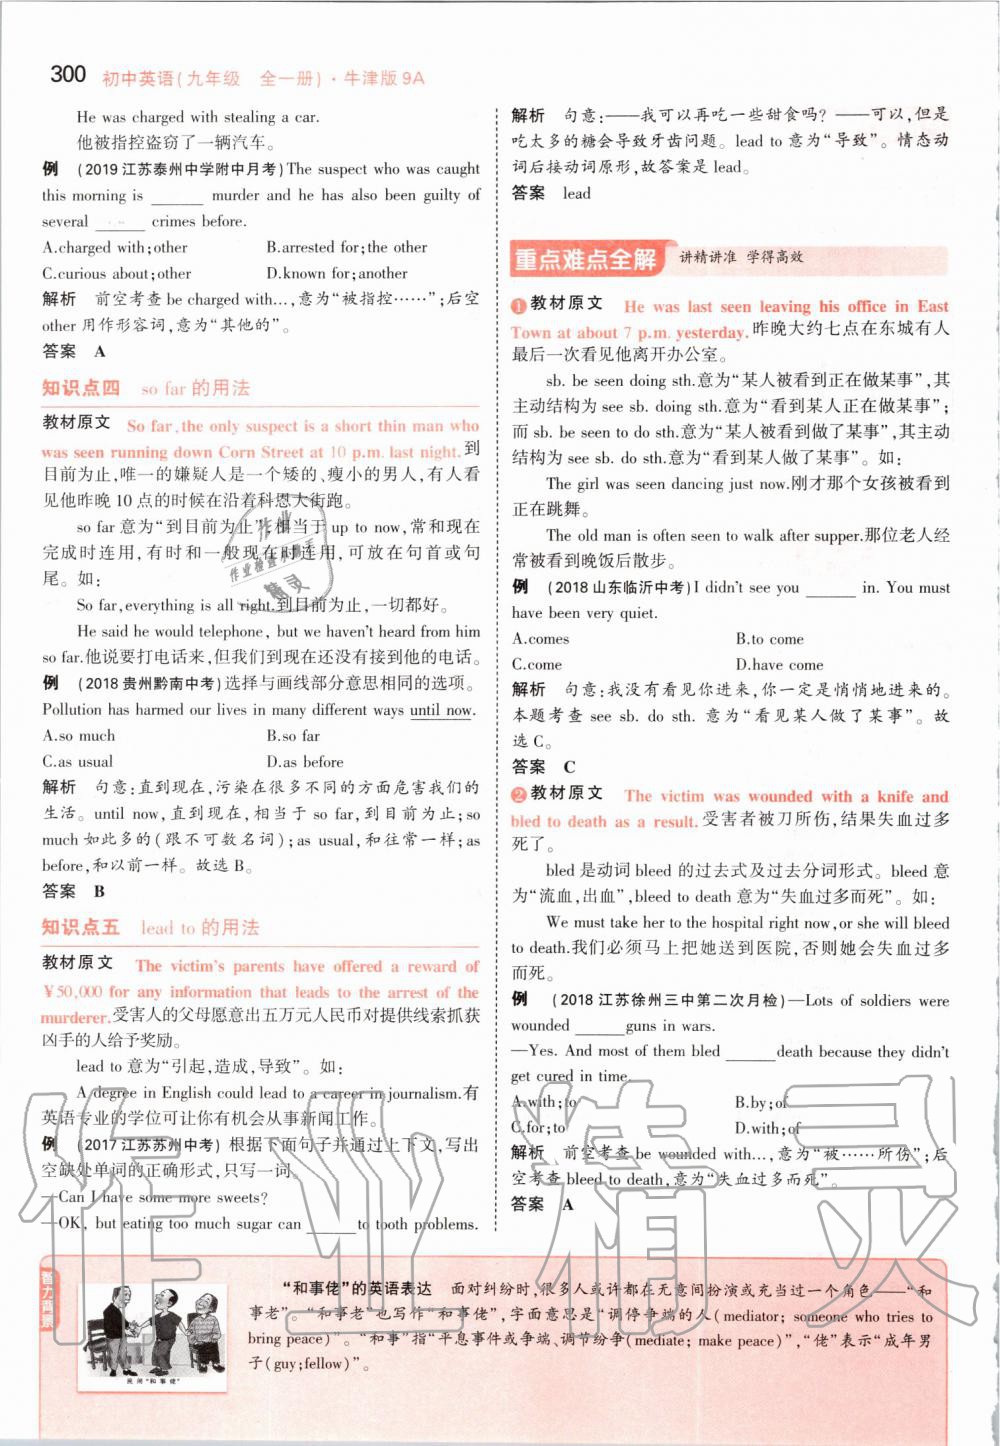 300 初中英语(九年级 全一册)·牛津版9A
He was charged with stealing a car.
他被指控盗窃了一辆汽车。
例 (2019江苏泰州中学附中月考)The suspect who was caught
this morning is ______ murder and he has also been guilty of
several ______ crimes before.
A.charged with;other B.arrested for;the other
C.curious about;other D.known for;another
解析 前空考查be charged with…,意为“被指控……”;后空
other用作形容词,意为“其他的”。
答案 A
知识点四 so far的用法
教材原文 So far,the only suspect is a short thin man who
was seen running down Corn Street at 10 p.m. last night.到
目前为止,唯一的嫌疑人是一个矮的、瘦小的男人,有人看
见他昨晚10点的时候在沿着科恩大街跑。
so far意为“到目前为止”,相当于up to now,常和现在
完成时连用,有时和一般现在时连用,可放在句首或句
尾。如:
So far,everything is all right.到目前为止,一切都好。
He said he would telephone, but we haven't heard from him
so far.他说要打电话来,但我们到现在还没有接到他的电话。
例 (2018贵州黔南中考)选择与画线部分意思相同的选项。
Pollution has harmed our lives in many different ways until now.
A.so much B.so far
C.as usual D.as before
解析 句意:直到现在,污染在很多不同的方面危害我们的
生活。until now,直到现在,相当于so far,到目前为止;so
much如此多的(跟不可数名词);as usual,和往常一样;as
before,和以前一样。故选B。
答案 B
知识点五 lead to的用法
教材原文 The victim's parents have offered a reward of
¥50,000 for any information that leads to the arrest of the
murderer.受害人的父母愿意出五万元人民币对提供线索抓获
凶手的人给予奖励。
lead to意为“引起,造成,导致”。如:
A degree in English could lead to a career in journalism.有
英语专业的学位可让你有机会从事新闻工作。
例 (2017江苏苏州中考)根据下面句子并通过上下文,写出
空缺处单词的正确形式,只写一词。
—Can I have some more sweets?
—OK, but eating too much sugar can ______ to tooth problems.
解析 句意:——我可以再吃一些甜食吗?——可以,但是
吃太多的糖会导致牙齿问题。lead to意为“导致”。情态动
词后接动词原形,故答案是lead。
答案 lead
重点难点全解 讲精讲准 学得高效
1 教材原文 He was last seen leaving his office in East
Town at about 7 p.m. yesterday.昨晚大约七点在东城有人
最后一次看见他离开办公室。
sb. be seen doing sth.意为“某人被看到正在做某事”,其
主动结构为see sb. doing sth.意为“看到某人正在做某事”;
而sb. be seen to do sth.意为“某人被看到做了某事”,其主动
结构为see sb. do sth.意为“看到某人做了某事”。如:
The girl was seen dancing just now.刚才那个女孩被看到
正在跳舞。
The old man is often seen to walk after supper.那位老人经
常被看到晚饭后散步。
例 (2018山东临沂中考)I didn't see you ______ in. You must
have been very quiet.
A.comes B.to come
C.come D.have come
解析 句意:我没有看见你进来,你一定是悄悄地进来的。
本题考查see sb. do sth. 意为“看见某人做了某事”。故
选C。
答案 C
2 教材原文 The victim was wounded with a knife and
bled to death as a result.受害者被刀所伤,结果失血过多
死了。
bled是动词bleed的过去式及过去分词形式。bleed意
为“流血,出血”,bleed to death意为“失血过多而死”。如:
We must take her to the hospital right now,or she will bleed
to death.我们必须马上把她送到医院,否则她会失血过多
而死。
例 (2018江苏徐州三中第二次月检)—Lots of soldiers were
wounded ______guns in wars.
—Yes. And most of them bled ______death because they didn't
get cured in time.
A.with;to B.by;of
C.for;to D.with;of
解析 前空考查be wounded with…,意为“被……所伤”;后
空考查bleed to death,意为“失血过多而死”。
答案 A
民间“和事佬”
“和事佬”的英语表达 面对纠纷时,很多人或许都在无意间扮演或充当过一个角色——“和
事老”。“和事老”也写作“和事佬”,字面意思是“调停争端的人(mediator; someone who tries to
bring peace)”。“和事”指“平息事件或争端、调节纷争(mediate; make peace)”,“佬”表示“成年男
子(guy;fellow)”。
作业精灵